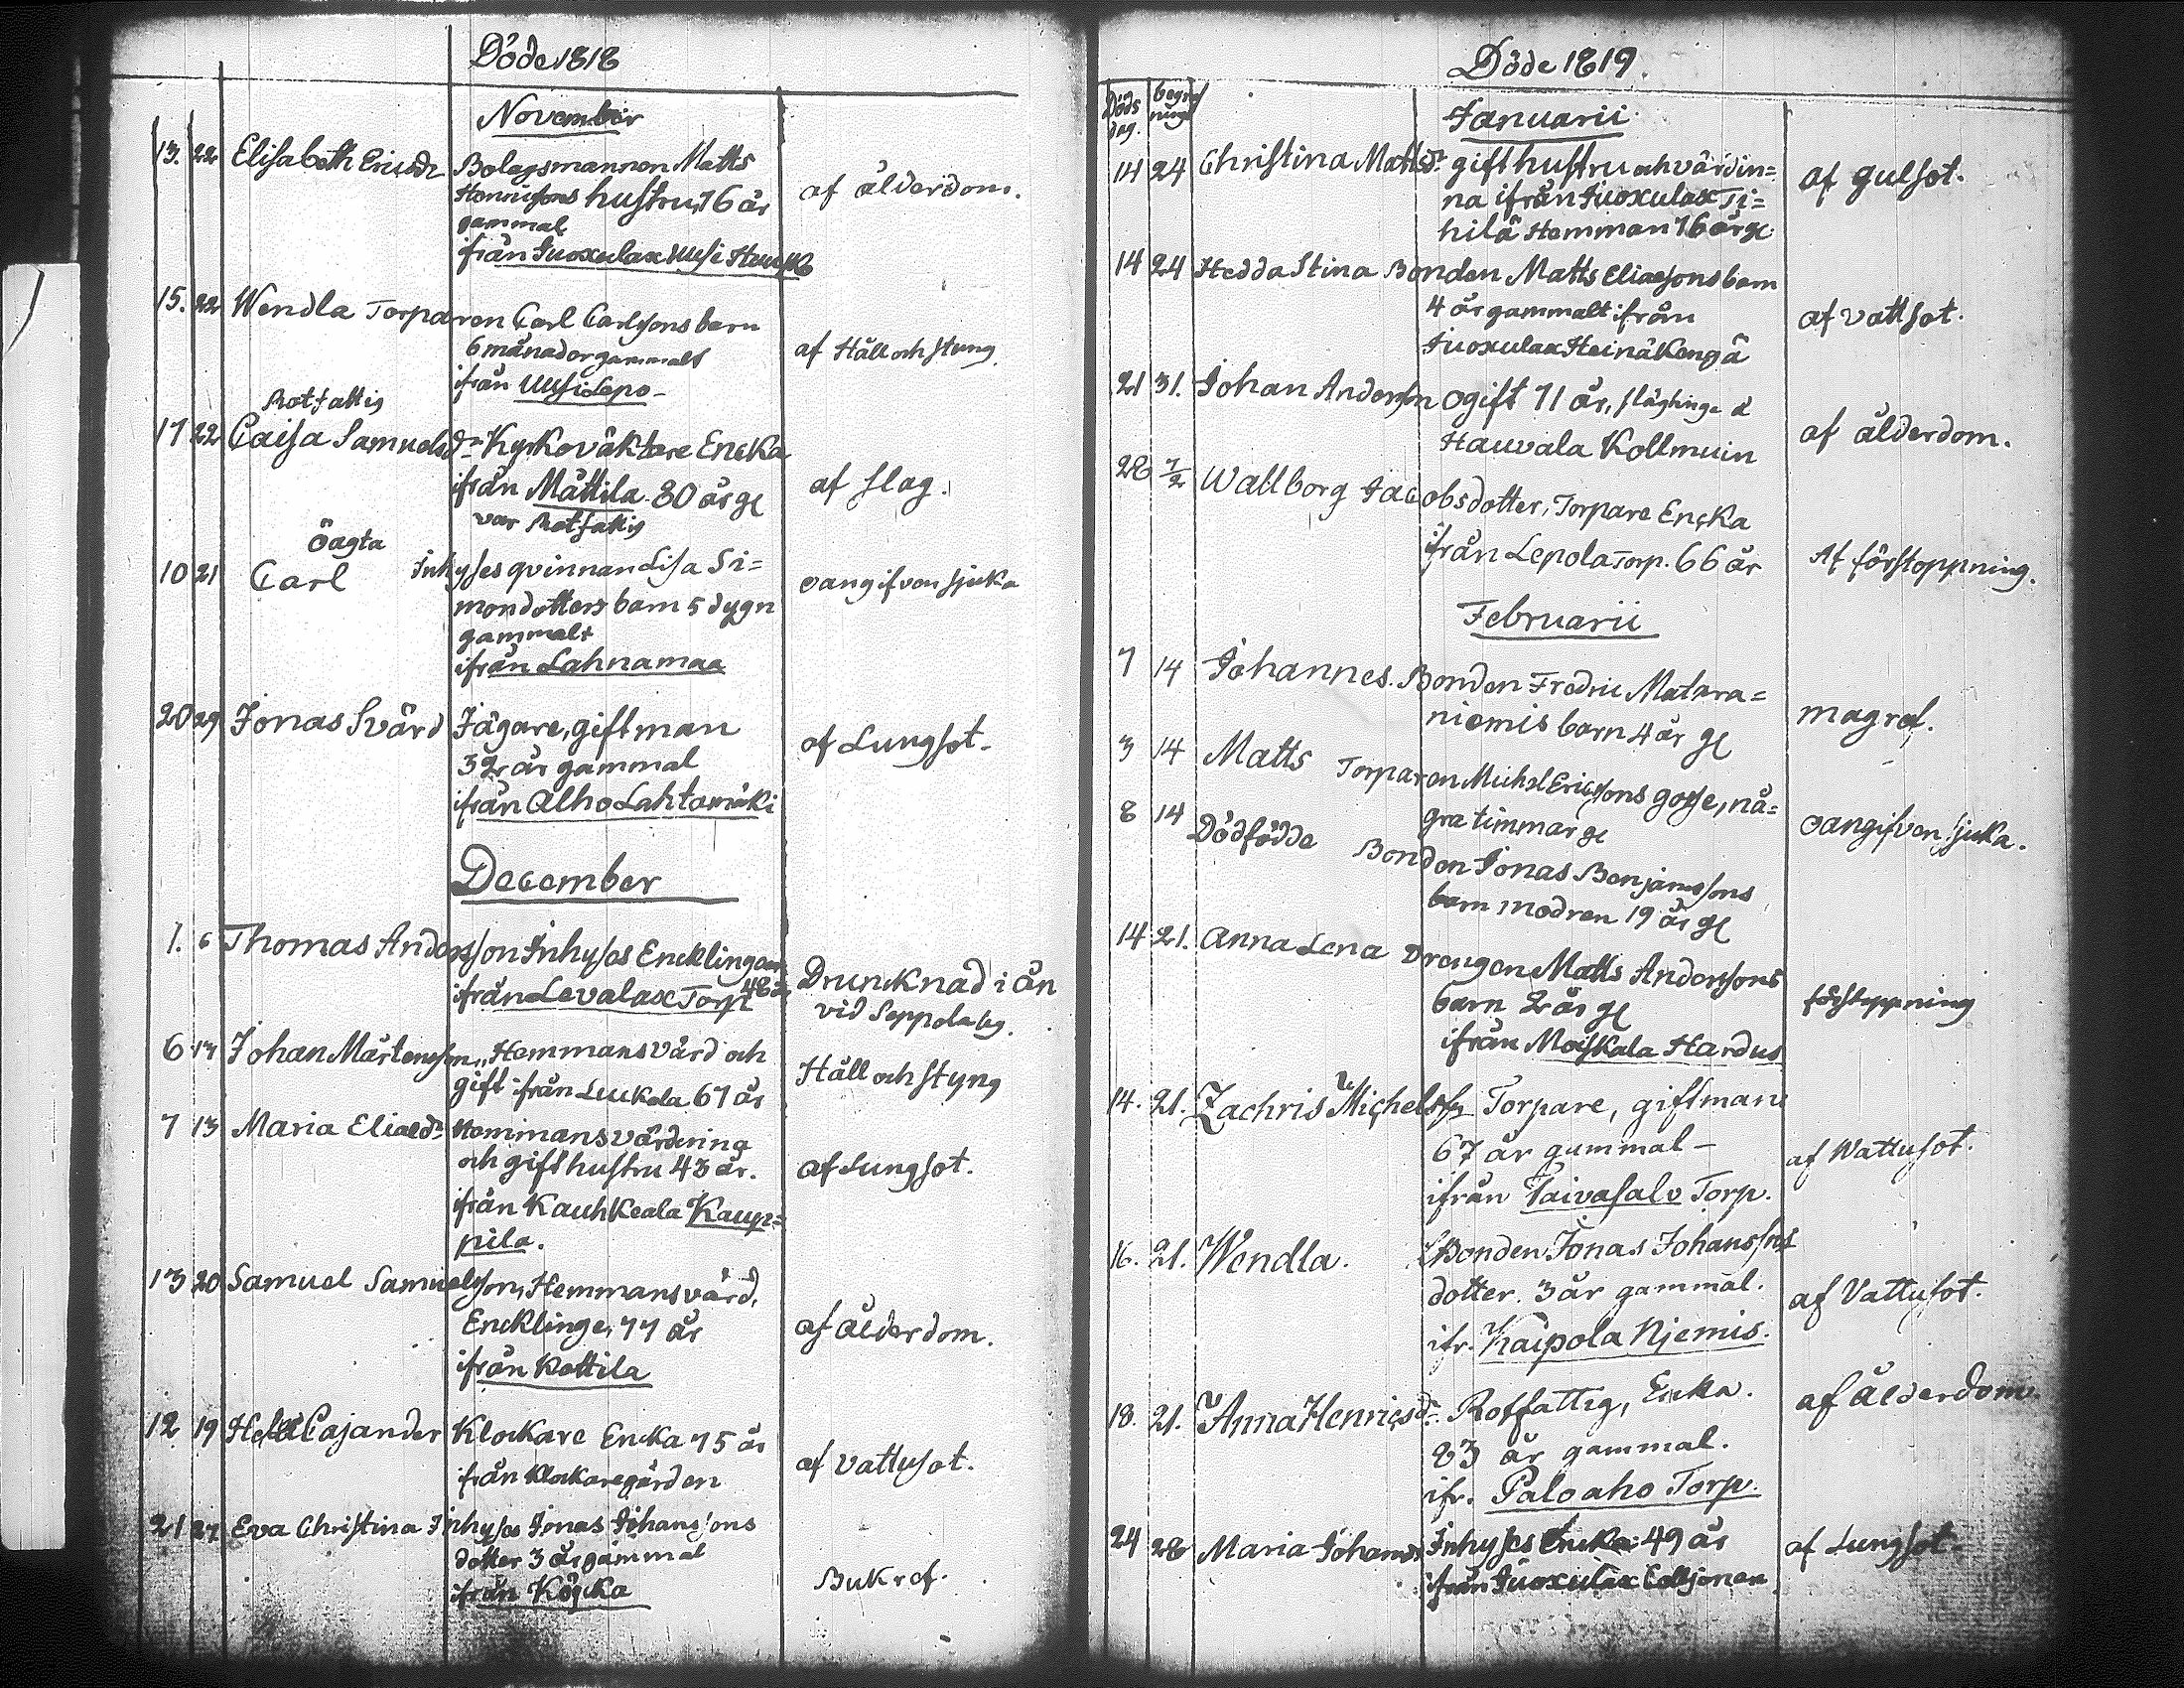 Döde 1818
November
13. 22 Elisabeth Ericsdr Bolagsmannen Matts
Henricsons hustru, 76 år
gammal
ifrån Juoxulax Uusi Heickilä
af ålderdom.
15. 22 Wendla Torparen Carl Carlsons barn
6 månader gammalt
ifrån Uusi Lepo
af Håll och stung.
Rotfattig
17 22 Caisa Samuelsdr Kyrkoväktare Encka
ifrån Mättilä 80 år gl
var Rotfattig
af slag.
oägta
10 21 Carl Inhyses qvinnan Lisa Si=
mondotters barn 5 dygn
gammalt
ifrån Lahnamaa
oangifven sjuka
20 29 Jonas Svärd Jägare, gift man
32 år gammal
ifrån Alho Lahtomäki
af Lungsot.
December
1. 6 Thomas Andersson Inhyses Encklingen
ifrån Levalax Torp 48 år
Druncknad i ån
vid Seppola
6 13 Johan Mårtensson, Hemmansvärd och
gift ifrån Luckola 67 år
Håll och styng
7 13 Maria Eliaedr Hemmansvärdinna
och gift hustru 43 år.
ifrån Kauhkeala Kaup=
pila.
af Lungsot.
13 20 Samuel Samuelsson, Hemmansvärd,
Encklinge, 77 år
ifrån Kottila
af ålderdom.
12 19 Hel: Cajander Klockare Encka 75 år
ifrån Klockaregården
af vattusot.
21 27 Eva Christina Inhyses Jonas Johanssons
dotter 3 år gammal
ifrån Köcka
Bukref.
Döde 1819.
Döds
dag.
begraf
ning
Januarii
14 24 Christina Mattsdr gift hustru och värdin=
na ifrån Juoxulax Ti=
hilä Hemman 76 år gl
af gulsot.
14 24 Hedda Stina Bonden Matts Eliaesons barn
4 år gammalt ifrån
Juoxulax Heinäkengä
af vattsot.
21 31. Johan Anderson ogift 71 år, släghinge å
Hauvala Kollmuin
af ålderdom.
28 7/2 Wallborg Jacobsdotter, Torpare Encka
ifrån Lepola Torp. 66 år
Af förstoppning.
Februarii
7 14 Johannes. Bonden Fredric Matara=
niemis barn 4 år gl
magref.
3 14 Matts Torparen Michel Ericssons gosse, nå=
gra timmar gl
oangifven sjuka.
8 14 Dödfödde Bonden Jonas Benjamssons
barn modren 19 år gl
14 21. Anna Lena Drengen Matts Anderssons
barn 2 år gl
ifrån Moiskala Hardus
förstoppning
14. 21. Zachris Michelss: Torpare, gift man
67 år gammal –
ifrån Taivasalo Torp.
af Wattusot.
16. 21. Wendla. Bonden Jonas Johanssons
dotter. 3 år gammal.
ifr. Kaipola Njemis.
af Vattusot.
18. 21. Anna Henricsdr Rotfattig, Encka.
83 år gammal.
ifr. Paloaho Torp.
af Ålderdom.
24 28 Maria Johansdr Inhyses Encka 49 år
ifrån Juoxulax
af Lungsot.